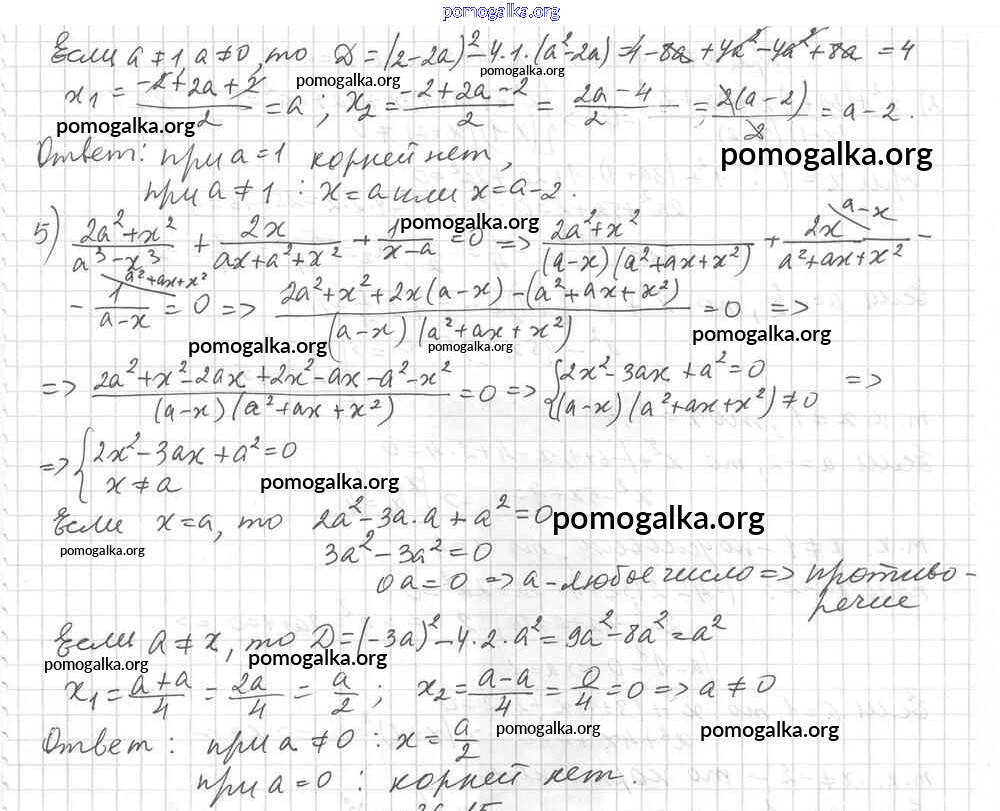 pomogalka.org
Если a ≠ 1, a ≠ 0, то D = (2-2a)² - 4·1·(a²-2a) = 4 - 8a + 4a² - 4a² + 8a = 4
pomogalka.org pomogalka.org
x₁ = (-2+2a+2)/2 = a ; x₂ = (-2+2a-2)/2 = (2a-4)/2 = 2(a-2)/2 = a-2.
pomogalka.org
Ответ: при a=1 корней нет,
pomogalka.org
при a ≠ 1 : x = a или x = a-2.
pomogalka.org
5) (2a²+x²)/(a³-x³) + 2x/(ax+a²+x²) + 1/(x-a) = 0 => (2a²+x²)/((a-x)(a²+ax+x²)) + 2x/(a²+ax+x²) a-x -
- 1/(a-x) a²+ax+x² = 0 => (2a²+x²+2x(a-x)-(a²+ax+x²))/((a-x)(a²+ax+x²)) = 0 =>
pomogalka.org pomogalka.org pomogalka.org
=> (2a²+x²-2ax+2x²-ax-a²-x²)/((a-x)(a²+ax+x²)) = 0 => { 2x²-3ax+a²=0 =>
(a-x)(a²+ax+x²) ≠ 0
=> { 2x²-3ax+a²=0
x ≠ a
pomogalka.org
Если x=a, то 2a²-3a·a+a²=0
pomogalka.org
pomogalka.org
3a²-3a²=0
0a=0 => a-любое число => противо-
речие
Если a ≠ x, то D=(-3a)²-4·2·a²=9a²-8a²=a²
pomogalka.org pomogalka.org
x₁ = (a+a)/4 = 2a/4 = a/2 ; x₂ = (a-a)/4 = 0/4 = 0 => a ≠ 0
pomogalka.org pomogalka.org
Ответ: при a ≠ 0 : x = a/2
при a=0 : корней нет.